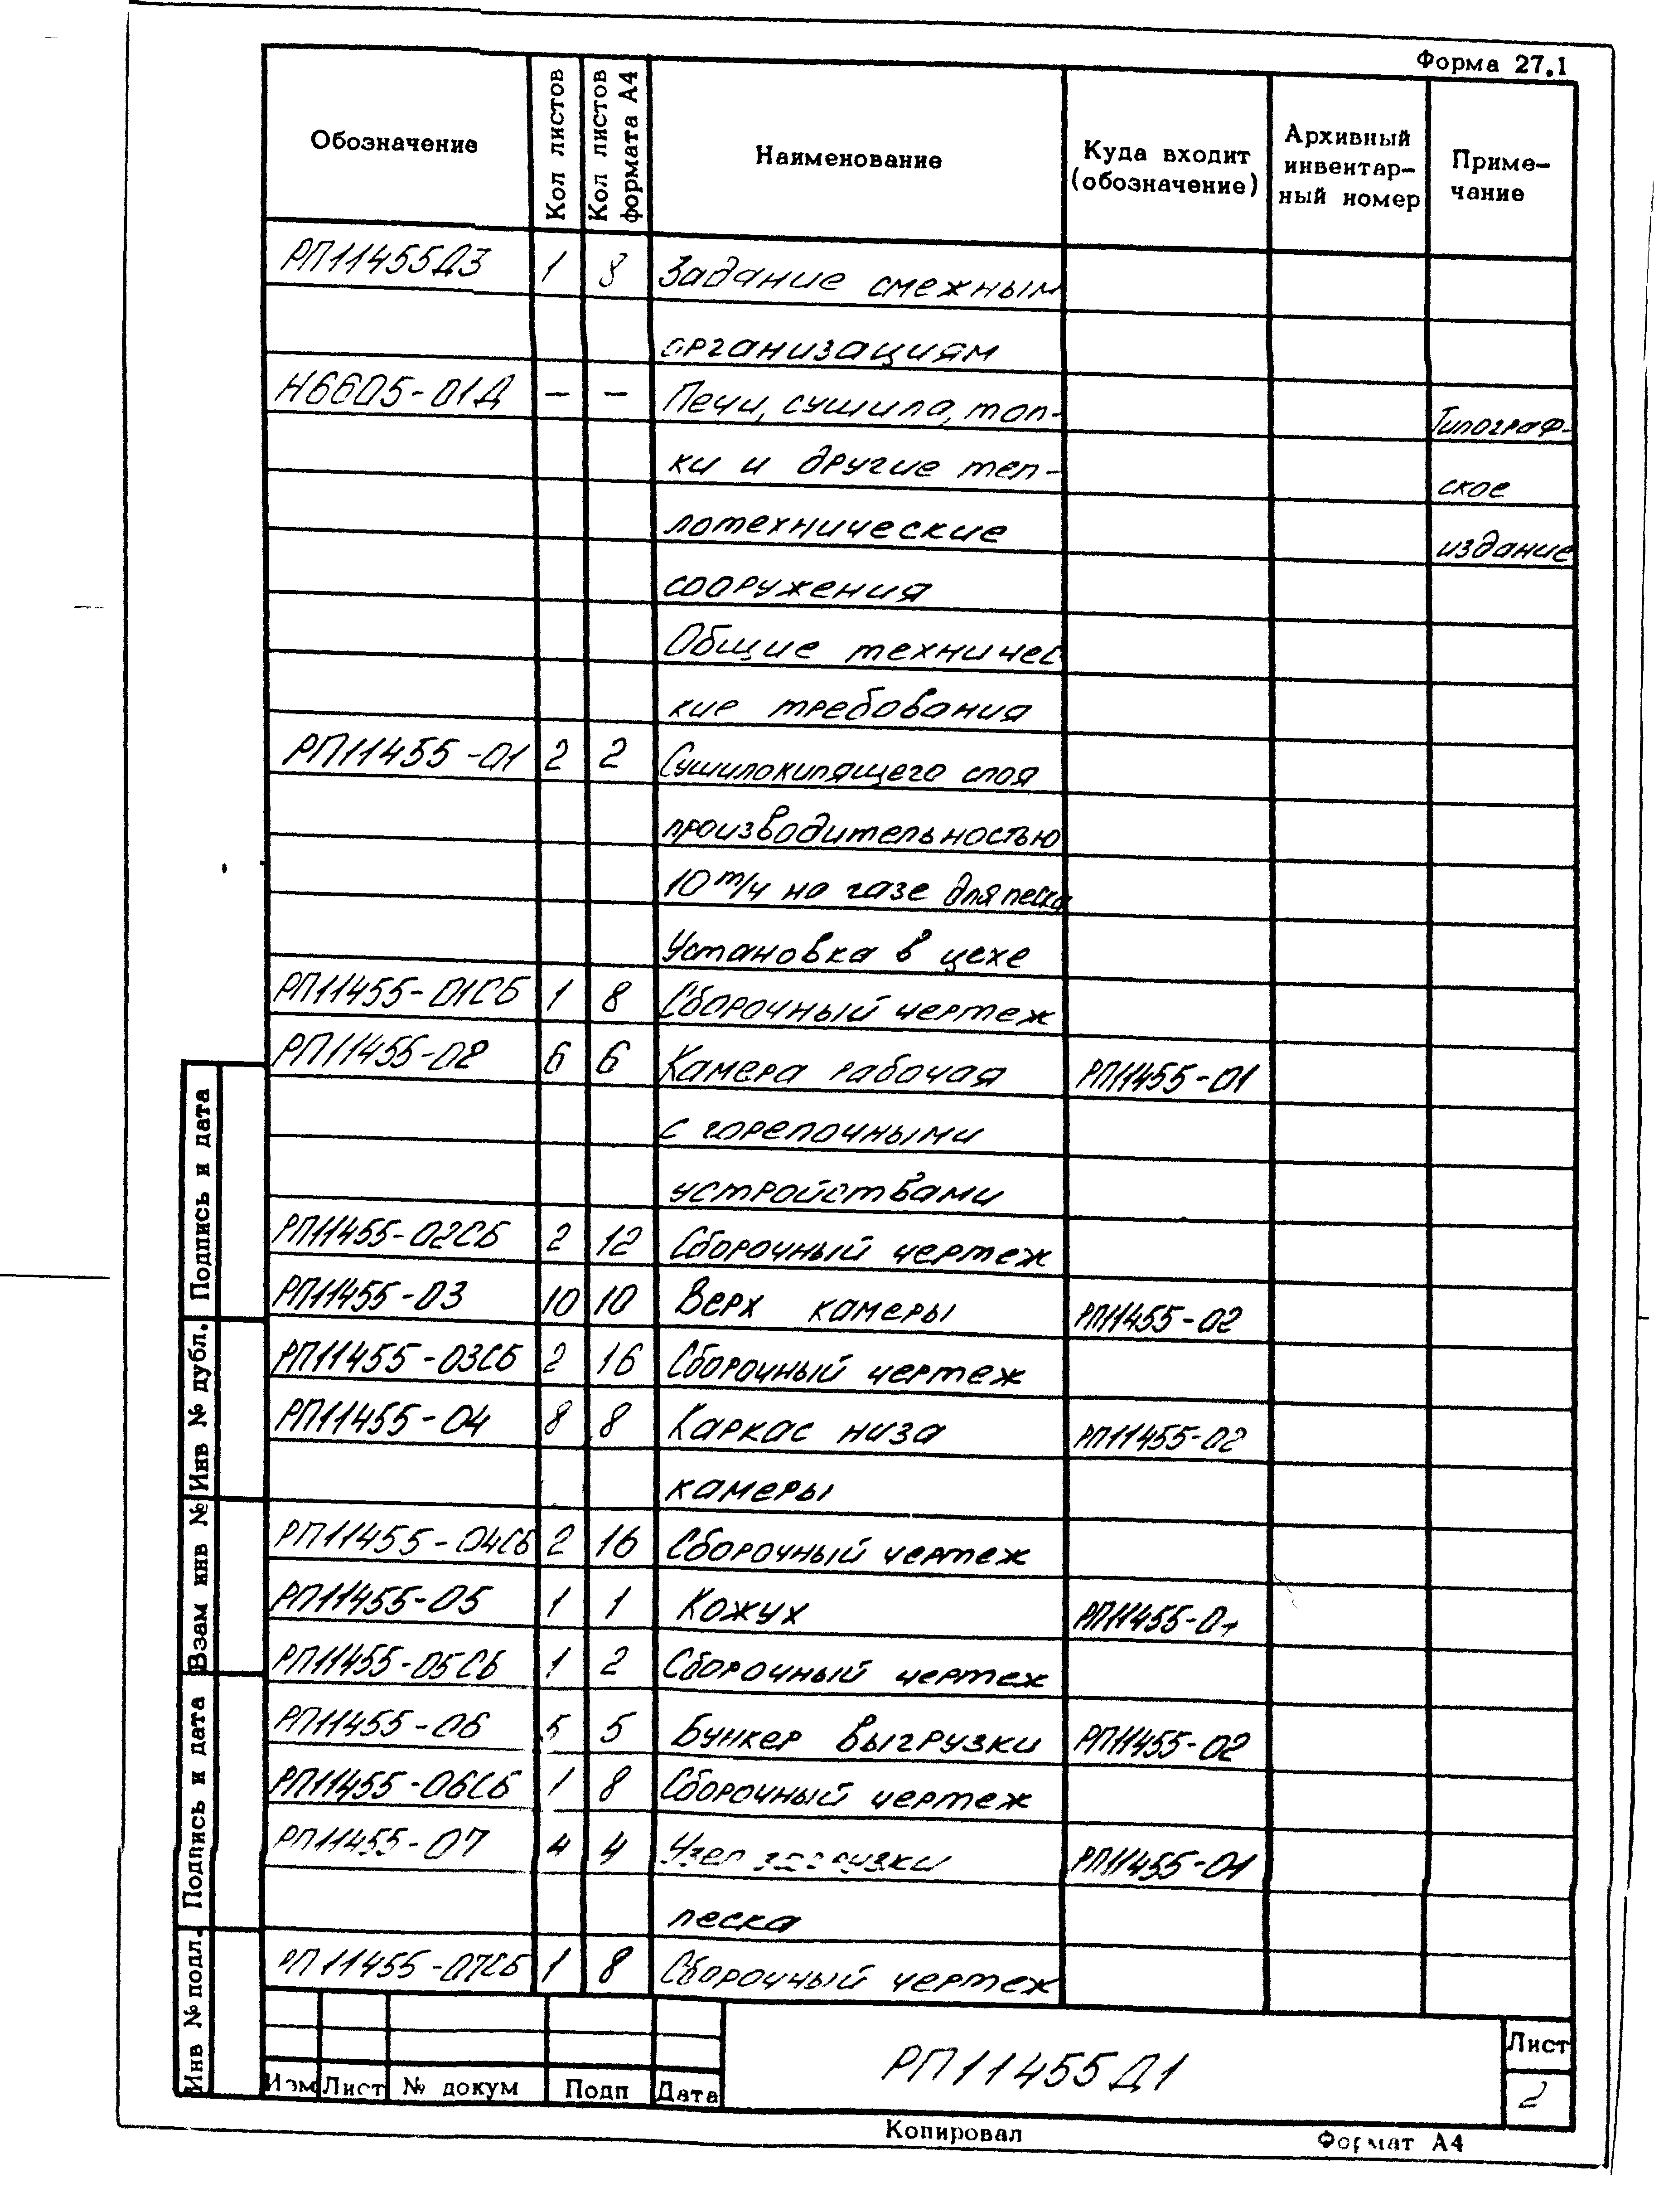 Форма 27.1
Обозначение
Кол листов
Кол листов формата А4
Наименование
Куда входит (обозначение)
Архивный инвентар-ный номер
Приме-чание
РП11455Д3 1 8 Задание смежным
организациям
Н6605-01Д — — Печи, сушила, топ- Типограф-
ки и другие теп- ское
лотехнические издание
сооружения
Общие техничес
кие требования
РП11455-01 2 2 Сушило кипящего слоя
производительностью
10 т/ч на газе для песка
Установка в цехе
РП11455-01СБ 1 8 Сборочный чертеж
РП11455-02 6 6 Камера рабочая РП11455-01
с горелочными
устройствами
РП11455-02СБ 2 12 Сборочный чертеж
РП11455-03 10 10 Верх камеры РП11455-02
РП11455-03СБ 2 16 Сборочный чертеж
РП11455-04 8 8 Каркас низа РП11455-02
камеры
РП11455-04СБ 2 16 Сборочный чертеж
РП11455-05 1 1 Кожух РП11455-01
РП11455-05СБ 1 2 Сборочный чертеж
РП11455-06 5 5 Бункер выгрузки РП11455-02
РП11455-06СБ 1 8 Сборочный чертеж
РП11455-07 4 4 Узел загрузки РП11455-01
песка
РП11455-07СБ 1 8 Сборочный чертеж
Подпись и дата
Инв № дубл.
Взам инв №
Подпись и дата
Инв № подл.
Изм Лист № докум Подп Дата
РП11455Д1
Лист
2
Копировал
Формат А4